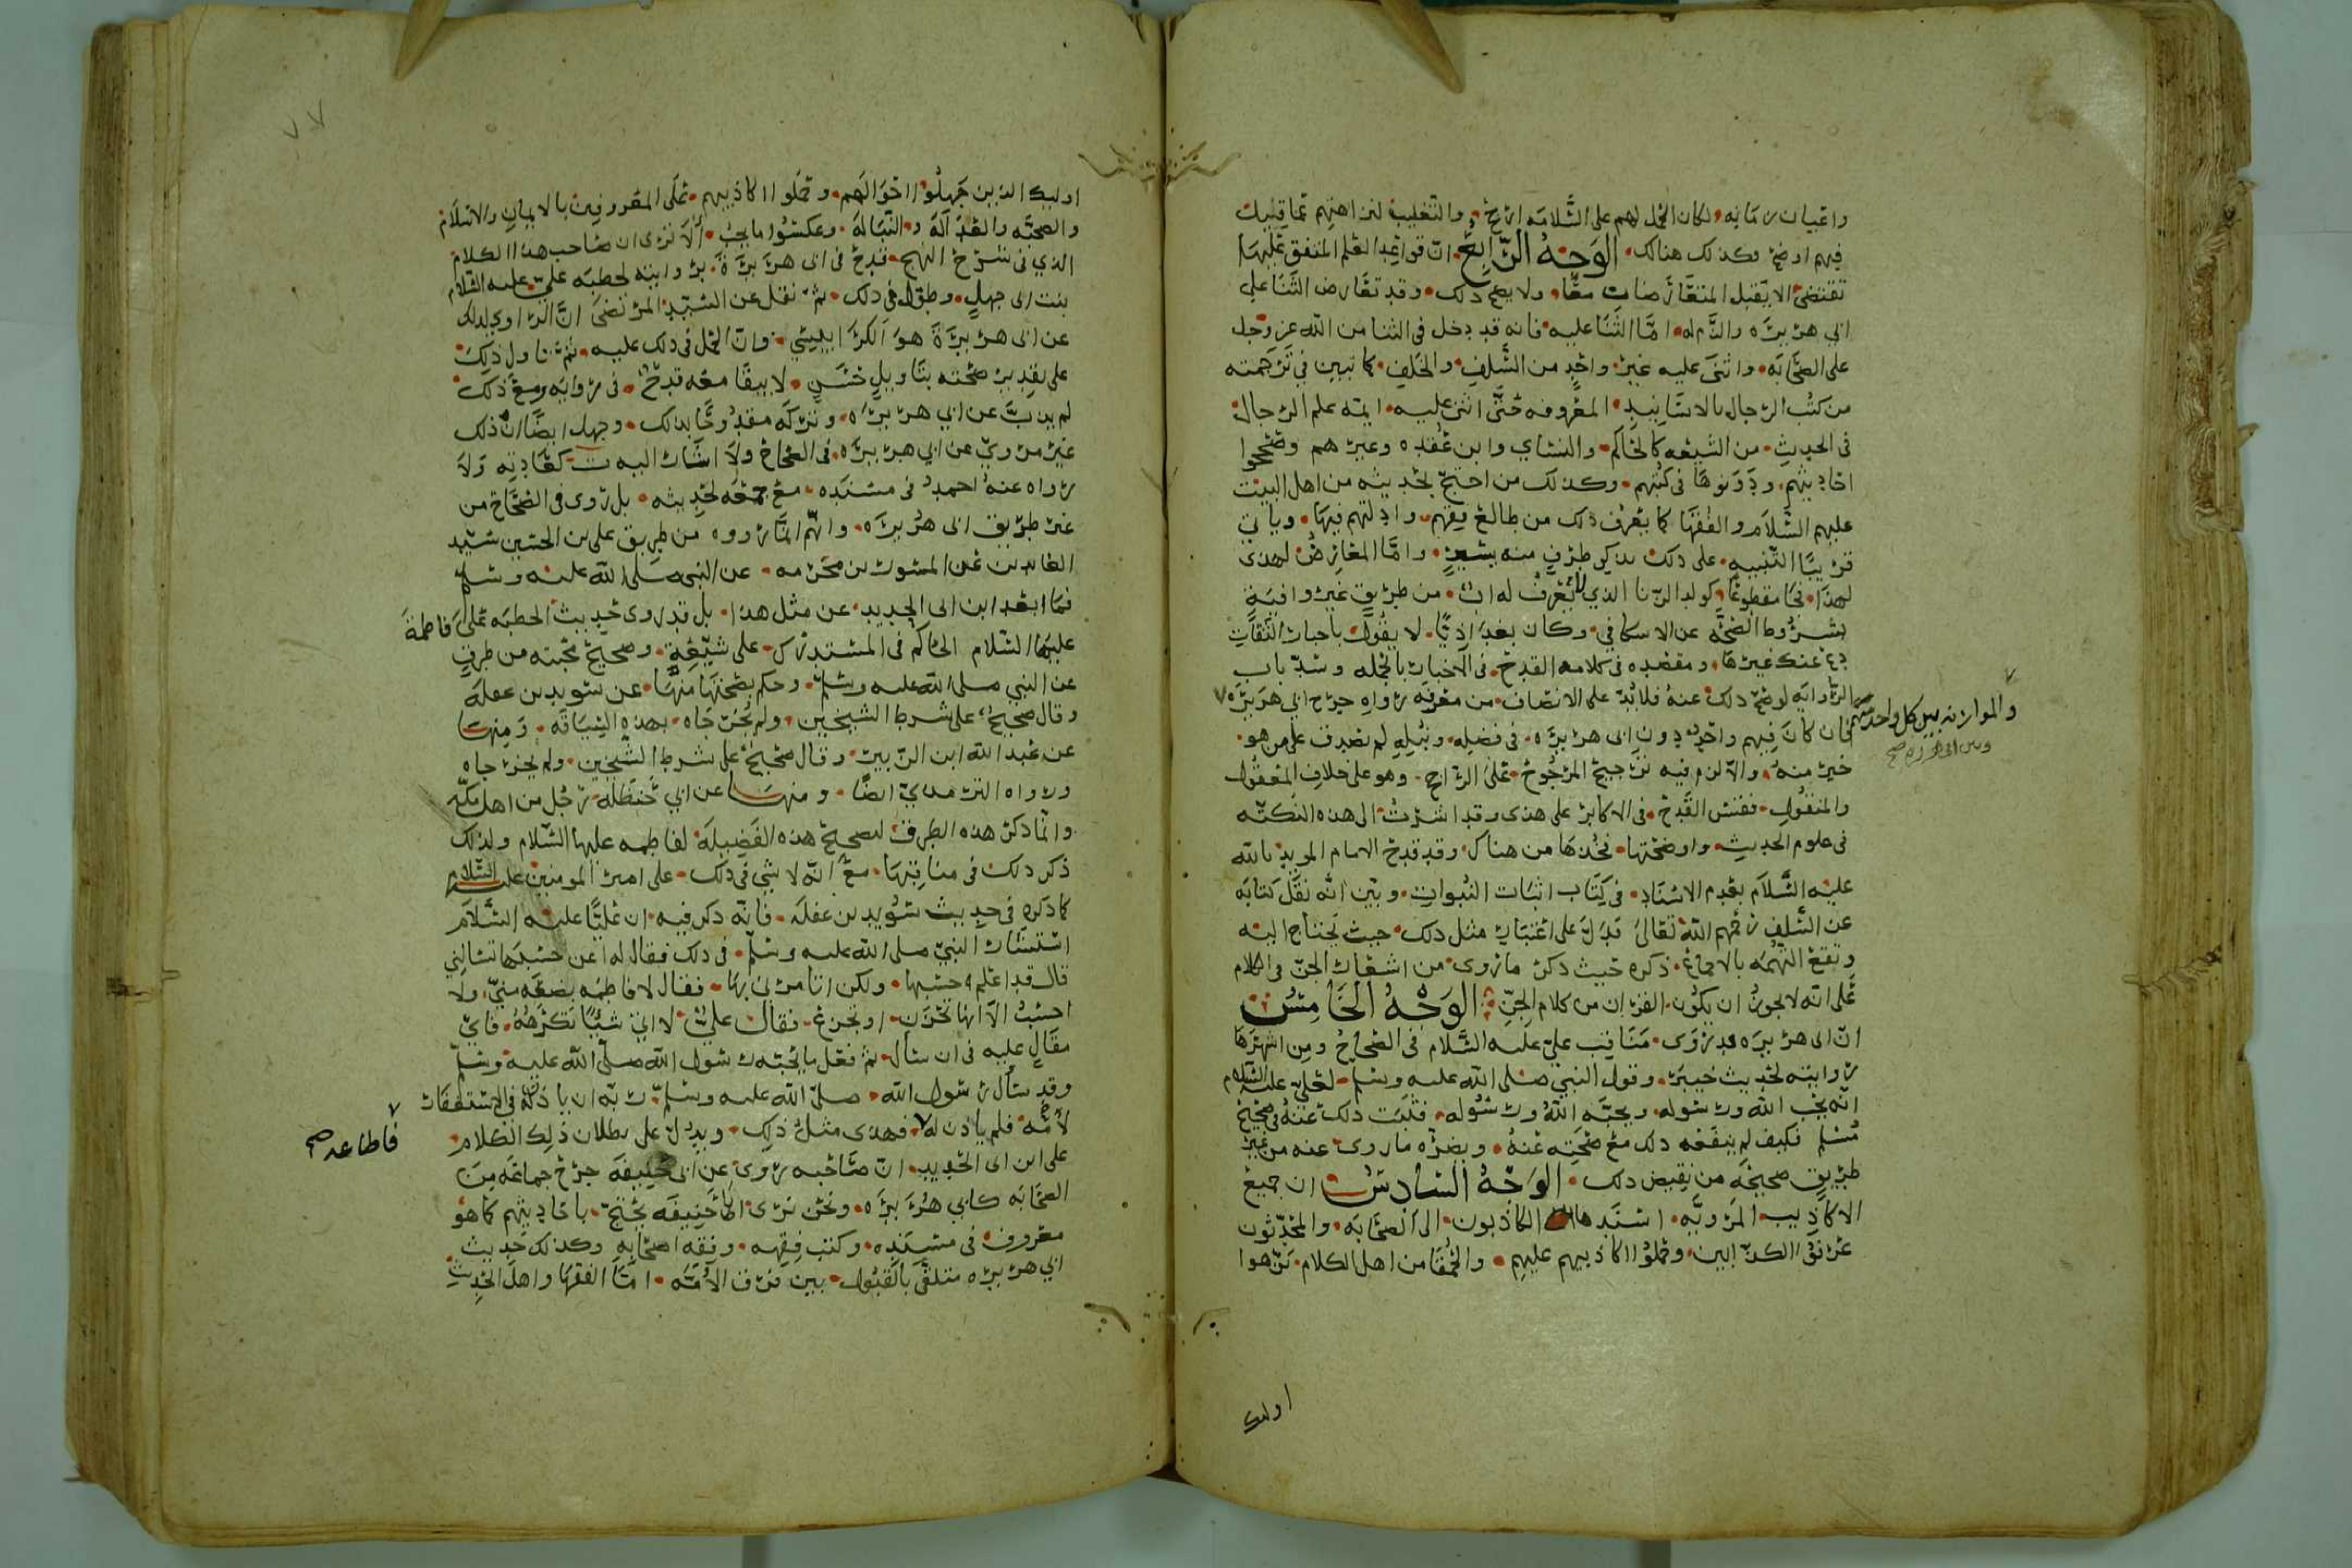 واعيان زمانه ولكان الحمل لهم على السلامه ارجح والتغليب لنزاهتهم مما قيل
فيهم اوضح وكذلك هنالك الوجه الرابع ان قواعد العلم المتفق عليها
تقتضي الا يقبل المتعارضات معا ولا يصح ذلك وقد تعارض الثنا على
ابي هريره والذم له اما الثنا عليه فانه قد دخل في الثنا من الله عز وجل
على الصحابه واثنى عليه غير واحد من السلف والخلف كما تبين في ترجمته
من كتب الرجال بالاسانيد المعروفه حتى اثنى عليه ايمه علم الرجال
في الحديث من الشيعه كالحاكم والنساي وابن عقده وغيرهم وصححوا
احاديثهم ودونوها في كتبهم وكذلك من احتج بحديثه من اهل البيت
عليهم السلام والفقها كما يعرف ذلك من طالع فقههم وادلتهم فيها وياتي
قريبا التنبيه على ذلك بذكر طرف منه يسير واما المعارض لهذى
لهذا فجا مقطوعا كولد الزنا الذي لا يعرف له اب من طريق غير وافية
بشروط الصحه عن الاسكافي وكان بغداذيا لا يقول باخبار الثقات
دع عنك غيرها ومقصده في كلامه القدح في الاخبار بالجمله وسد باب
الروايه لو صح ذلك عنه فلابد على الانصاف من معرفه رواه جرح ابي هريره
والموازنه بين كل واحد منهم
وبين ابي هريره صح
فان كان فيهم واحد دون ابي هريره في فضله ونبله لم نصدق على من هو
خير منه والا لزم فيه ترجيح المرجوح على الراجح وهو على خلاف المعقول
والمنقول ففتش القدح في الاكابر على هذى وقد اشرت الى هذه النكته
في علوم الحديث واوضحتها فخذها من هناك وقد قدح الامام المويد بالله
عليه السلام بعدم الاسناد في كتاب اثبات النبوات وبين انه نقل كتابه
عن السلف رحمهم الله تعالى فدل على اعتبار مثل ذلك حيث يحتاج اليه
وتقع التهمه بالاجماع ذكره حيث ذكر ما روى من اشعار الجن في الكلام
على انه لا يجوز ان يكون القران من كلام الجن الوجه الخامس
ان ابي هريره قد روى مناقب علي عليه السلام في الصحاح ومن اشهرها
روايته لحديث خيبر وقول النبي صلى الله عليه وسلم لعلي عليه السلام
انه يحب الله ورسوله ويحبه الله ورسوله فثبت ذلك عنه في صحيح
مسلم فكيف لم ينفعه ذلك مع صحته عنه ويضره ما روى عنه من غير
طريق صحيحه من نقيض ذلك الوجه السادس ان جميع
الاكاذيب المرويه اسندها الكاذبون الى الصحابه والمحدثون
عرفوا الكذابين وحملوا اكاذيبهم عليهم والحمقا من اهل الكلام نزهوا
اوليك
اوليك الذين جهلوا احوالهم وحملوا اكاذيبهم على المعروفين بالايمان والاسلام
والصحبه والعداله والنباله وعكسوا ما يجب الا ترى ان صاحب هذا الكلام
الذي في شرح النهج قدح في ابي هريرة بروايته لخطبه علي عليه السلام
بنت ابي جهل وطول في ذلك ثم نقل عن السيد المرتضى ان الراوي لذلك
عن ابي هريرة هو الكرابيسي وان الحمل في ذلك عليه ثم تاول ذلك
على تقدير صحته بتاويل حسن لا يبقا معه قدح في روايه ومع ذلك
لم يذب عن ابي هريره وتركه مقدوحا بذلك وجهل ايضا ان ذلك
غير مروي عن ابي هريره في الصحاح ولا اشار اليه ت كعادته ولا
رواه عنه احمد في مسنده مع جمعه لحديثه بل روى في الصحاح من
غير طريق ابي هريره وانهم انما رووه من طريق علي بن الحسين سيد
العابدين عن المسور بن مخرمه عن النبي صلى الله عليه وسلم
فما ابعد ابن ابي الحديد عن مثل هذا بل قد روى حديث الخطبه على فاطمة
عليها السلام الحاكم في المستدرك على شيعيه وصحيح محبته من طرق
عن النبي صلى الله عليه وسلم وحكم بصحتها منها عن سويد بن غفله
وقال صحيح على شرط الشيخين ولم يخرجاه بهذه السياقه ومنها
عن عبد الله ابن الزبير وقال صحيح على شرط الشيخين ولم يخرجاه
ورواه الترمذي ايضا ومنها عن ابي حنظله رجل من اهل مكه
وانما ذكر هذه الطرق لتصحيح هذه الفضيله لفاطمه عليها السلام ولذلك
ذكر ذلك في مناقبها مع انه لا شي في ذلك على امير المومنين عليه السلام
كما ذكره في حديث سويد بن غفله فانه ذكر فيه ان عليا عليه السلام
استشار النبي صلى الله عليه وسلم في ذلك فقال له اعن حسبها تسالني
قال قد اعلم حسبها ولكن اتامرني بها فقال لا فاطمه بضعه مني ولا
احسب الا انها تحزن او تجزع فقال علي لا اتي شيئا تكرهه فاي
مقال عليه في ان سال ثم فعل ما يحبه رسول الله صلى الله عليه وسلم
وقد سال رسول الله صلى الله عليه وسلم ربه ان ياذن له في الاستغفار
لامه فلم ياذن له فهذى مثل ذلك ويدل على بطلان ذلك الكلام
على ابن ابي الحديد ان صاحبه روى عن ابي حنيفه جرح جماعه من
الصحابه كابي هريره ونحن نرى ابا حنيفه يحتج باحاديثهم كما هو
معروف في مسنده وكتب فقهه وفقه اصحابه وكذلك حديث
ابي هريره متلقى بالقبول بين فرق الامه اما الفقها واهل الحديث